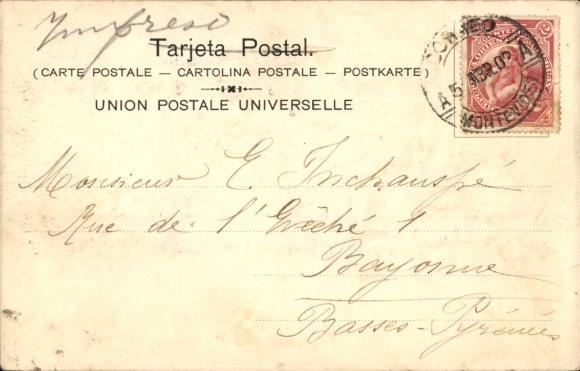 Impreso
Tarjeta Postal.
(CARTE POSTALE — CARTOLINA POSTALE — POSTKARTE)
UNION POSTALE UNIVERSELLE
CORREO
A
5 ABR. 02
MONTEVIDEO
Monsieur E. Inchauspé
Rue de l'Evêché 1
Bayonne
Basses-Pyrénées